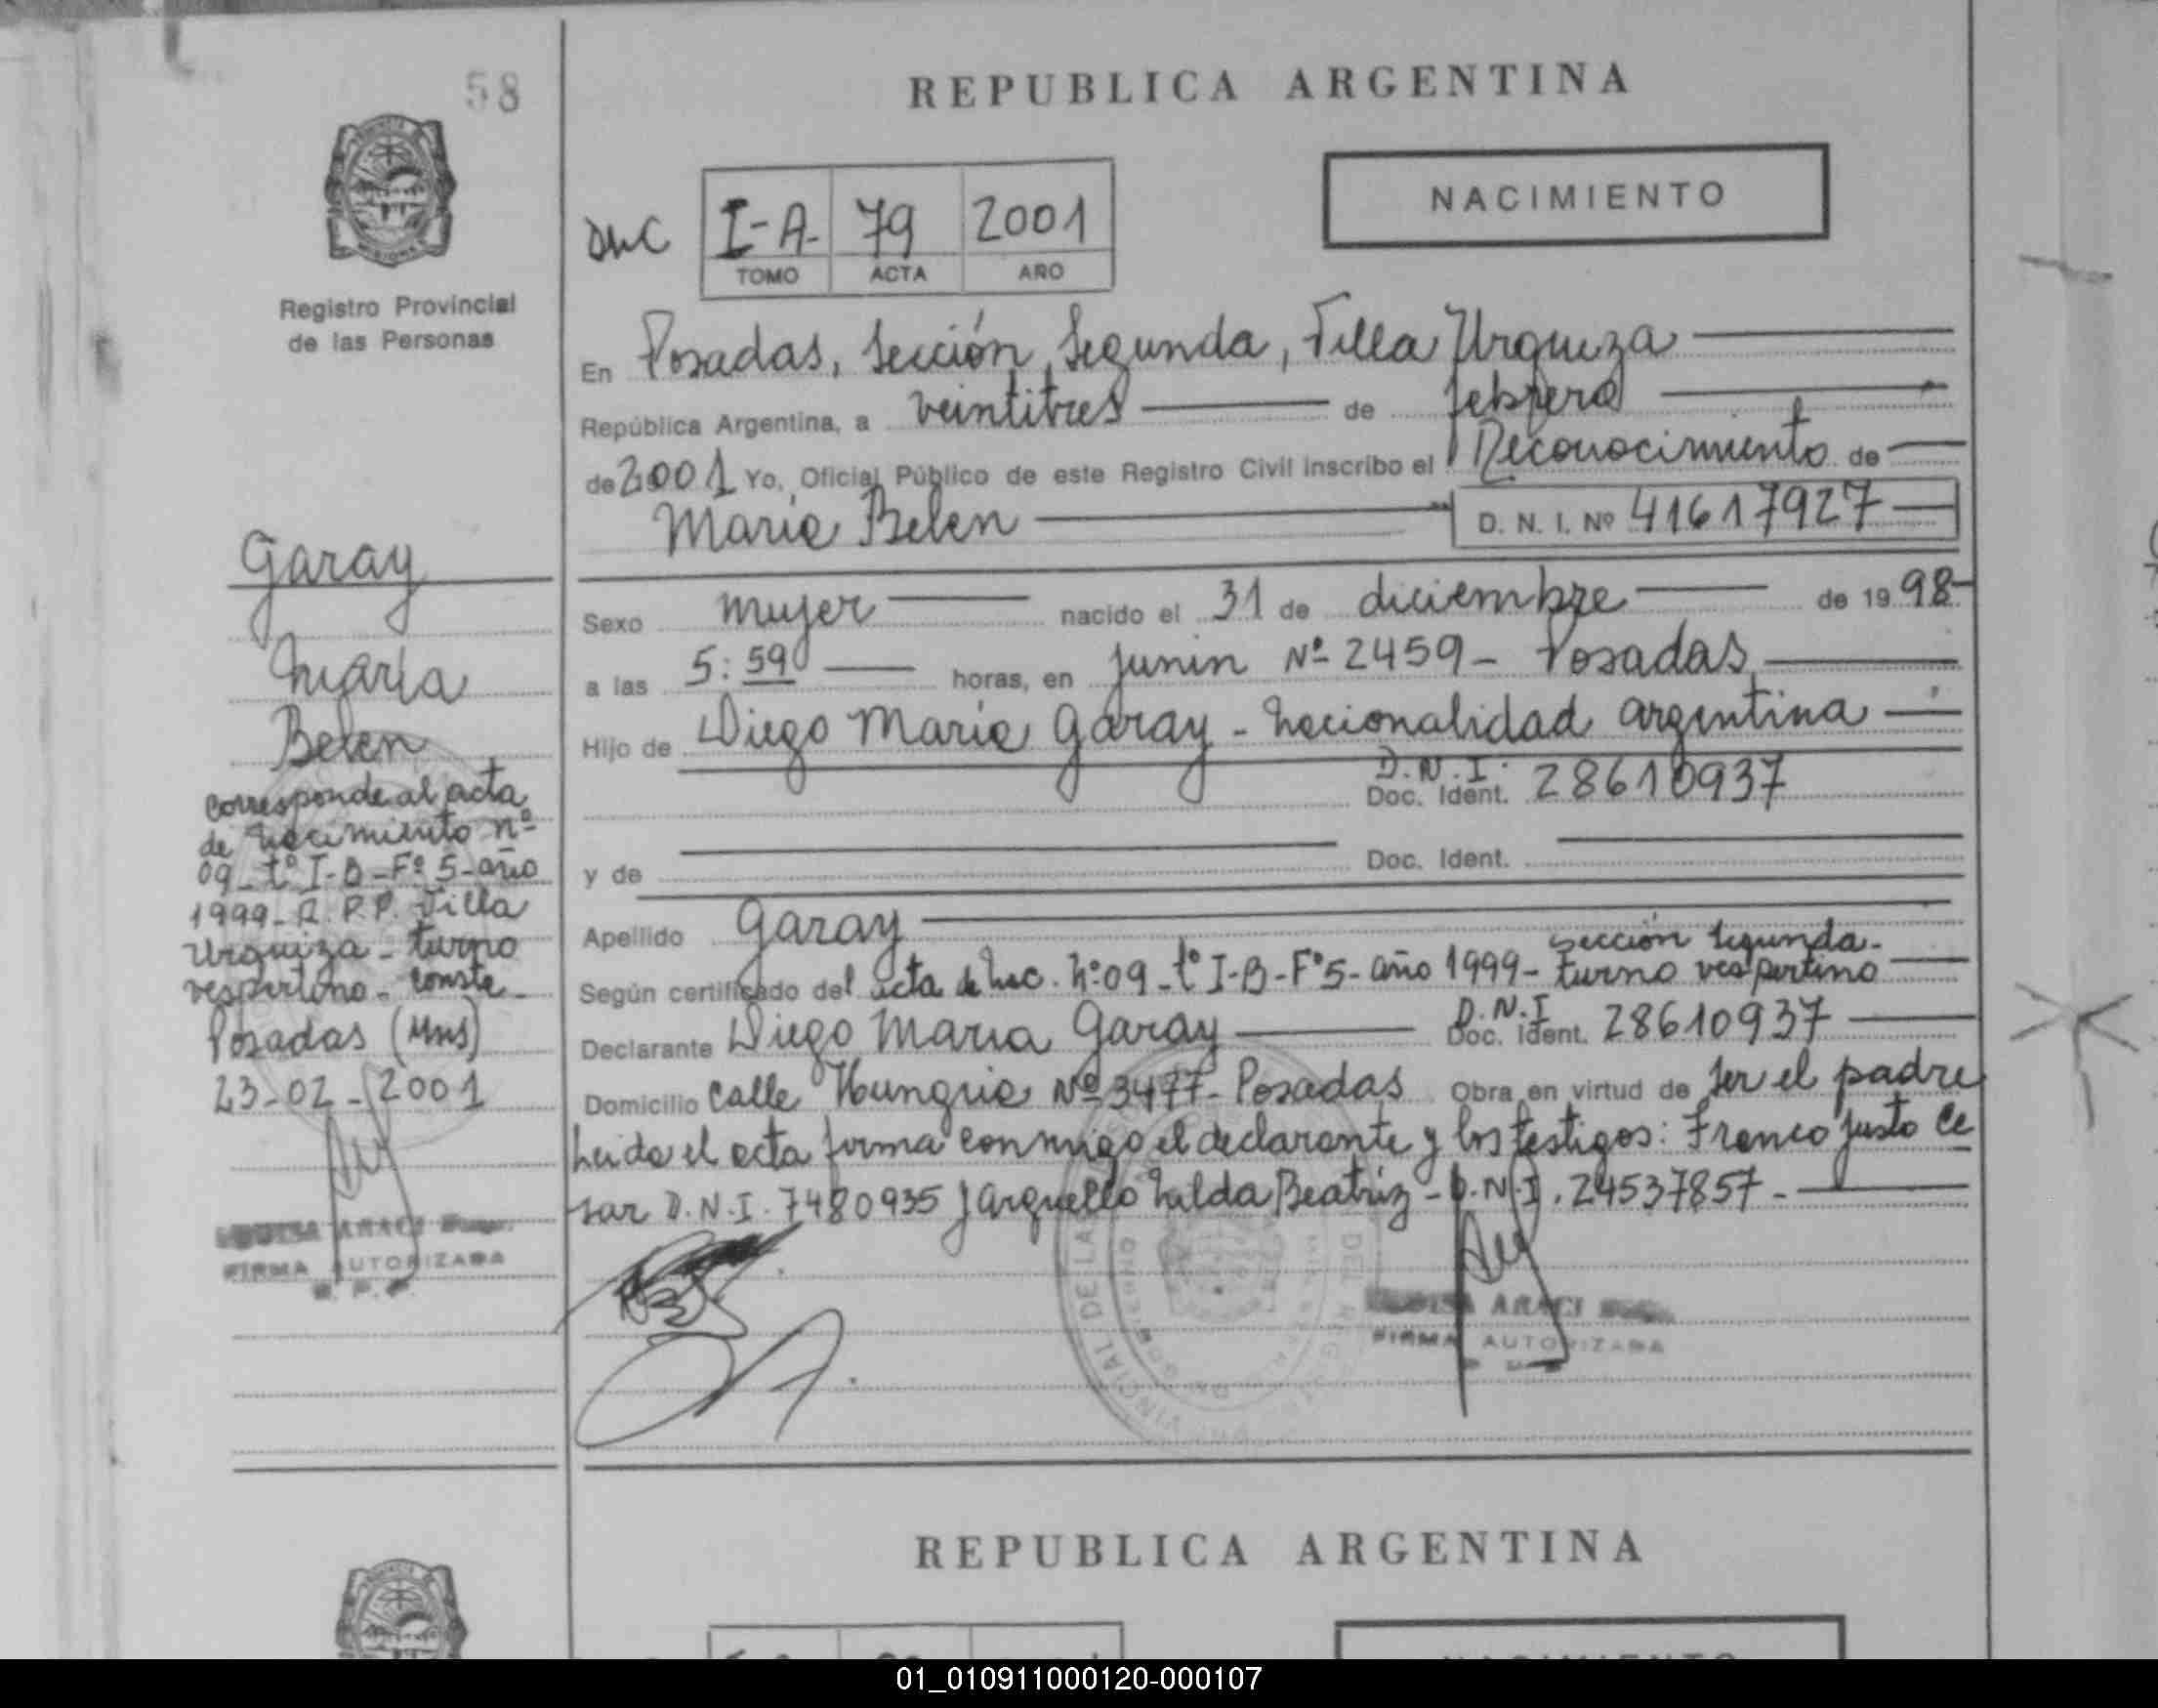 58
REPUBLICA ARGENTINA
NACIMIENTO
I-A- 79 2001
TOMO ACTA AÑO
Registro Provincial
de las Personas
En Posadas, Sección Segunda, Villa Urquiza
República Argentina, a veintitres de febrero
de 2001 Yo, Oficial Público de este Registro Civil inscribo el Reconocimiento de
Maria Belen D. N. I. Nº 41617927
Sexo mujer nacido el 31 de diciembre de 19 98
a las 5:59 horas, en Junin Nº 2459 - Posadas
Hijo de Diego Maria Garay - nacionalidad argentina
D.N.I.
Doc. Ident. 28610937
y de Doc. Ident.
Apellido Garay
sección segunda-
Según certificado del acta de nac. nº 09 - tº I-B - Fº 5 - año 1999 - turno vespertino
D.N.I
Declarante Diego Maria Garay Doc. Ident. 28610937
Domicilio Calle Hungria Nº 3477 - Posadas Obra en virtud de ser el padre
Leida el acta firma conmigo el declarante y los testigos: Franco Justo Ce
sar D.N.I. 7480935 y Arguello Nilda Beatriz - D.N.I. 24537857 -
ARACI
FIRMA AUTORIZADA
Garay
Maria
Belen
Corresponde al acta
de nacimiento nº
09 - tº I-B - Fº 5 - año
1999 - R.P.P. Villa
Urquiza - turno
vespertino - conste -
Posadas (Mns)
23-02-2001
ARACI
FIRMA AUTORIZADA
REPUBLICA ARGENTINA
NACIMIENTO
01_010911000120-000107